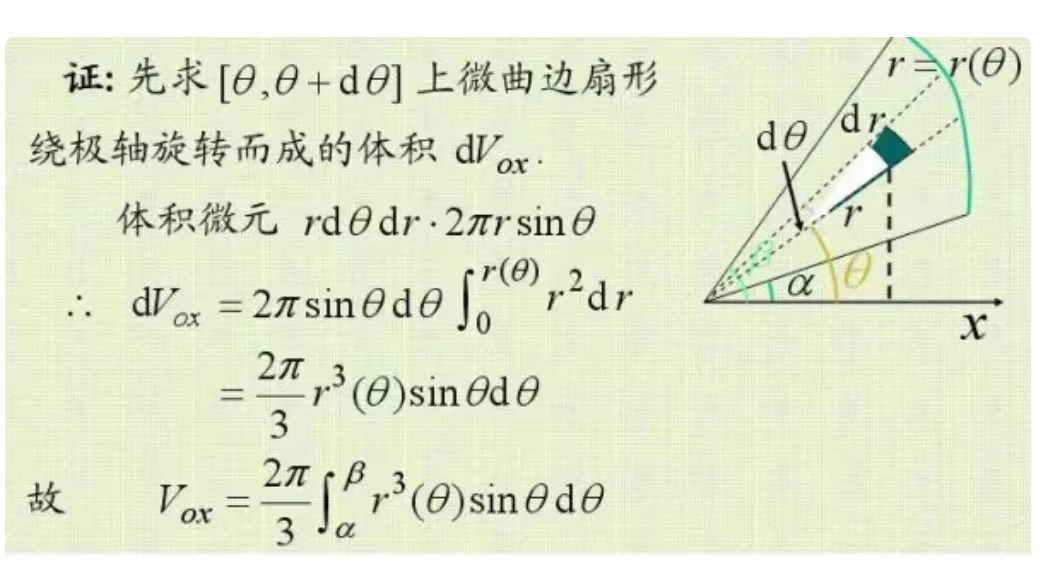 证: 先求 [θ,θ+dθ] 上微曲边扇形
绕极轴旋转而成的体积 dV_{ox}.
体积微元 rdθdr·2πr sinθ
∴ dV_{ox} = 2π sinθdθ ∫_0^{r(θ)} r²dr
= \frac{2π}{3} r³(θ)sinθdθ
故 V_{ox} = \frac{2π}{3} ∫_α^β r³(θ)sinθdθ
r = r(θ)
dr
dθ
r
α
θ
x